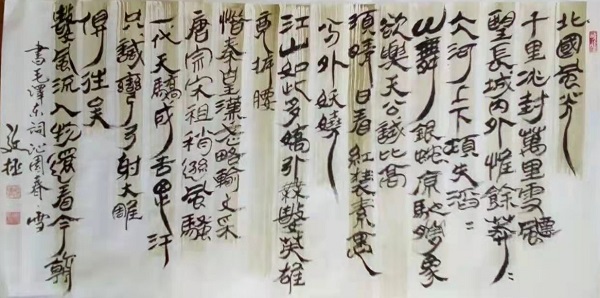 北國風光
千里冰封萬里雪飄
望長城內外惟餘莽〻
大河上下頓失滔〻
山舞銀蛇原馳蠟象
欲與天公試比高
須晴日看紅裝素裹
分外妖嬈
江山如此多嬌引無數英雄
競折腰
惜秦皇漢武略輸文采
唐宗宋祖稍遜風騷
一代天驕成吉思汗
只識彎弓射大雕
俱往矣
數風流人物還看今朝
書毛澤東詞沁園春·雪